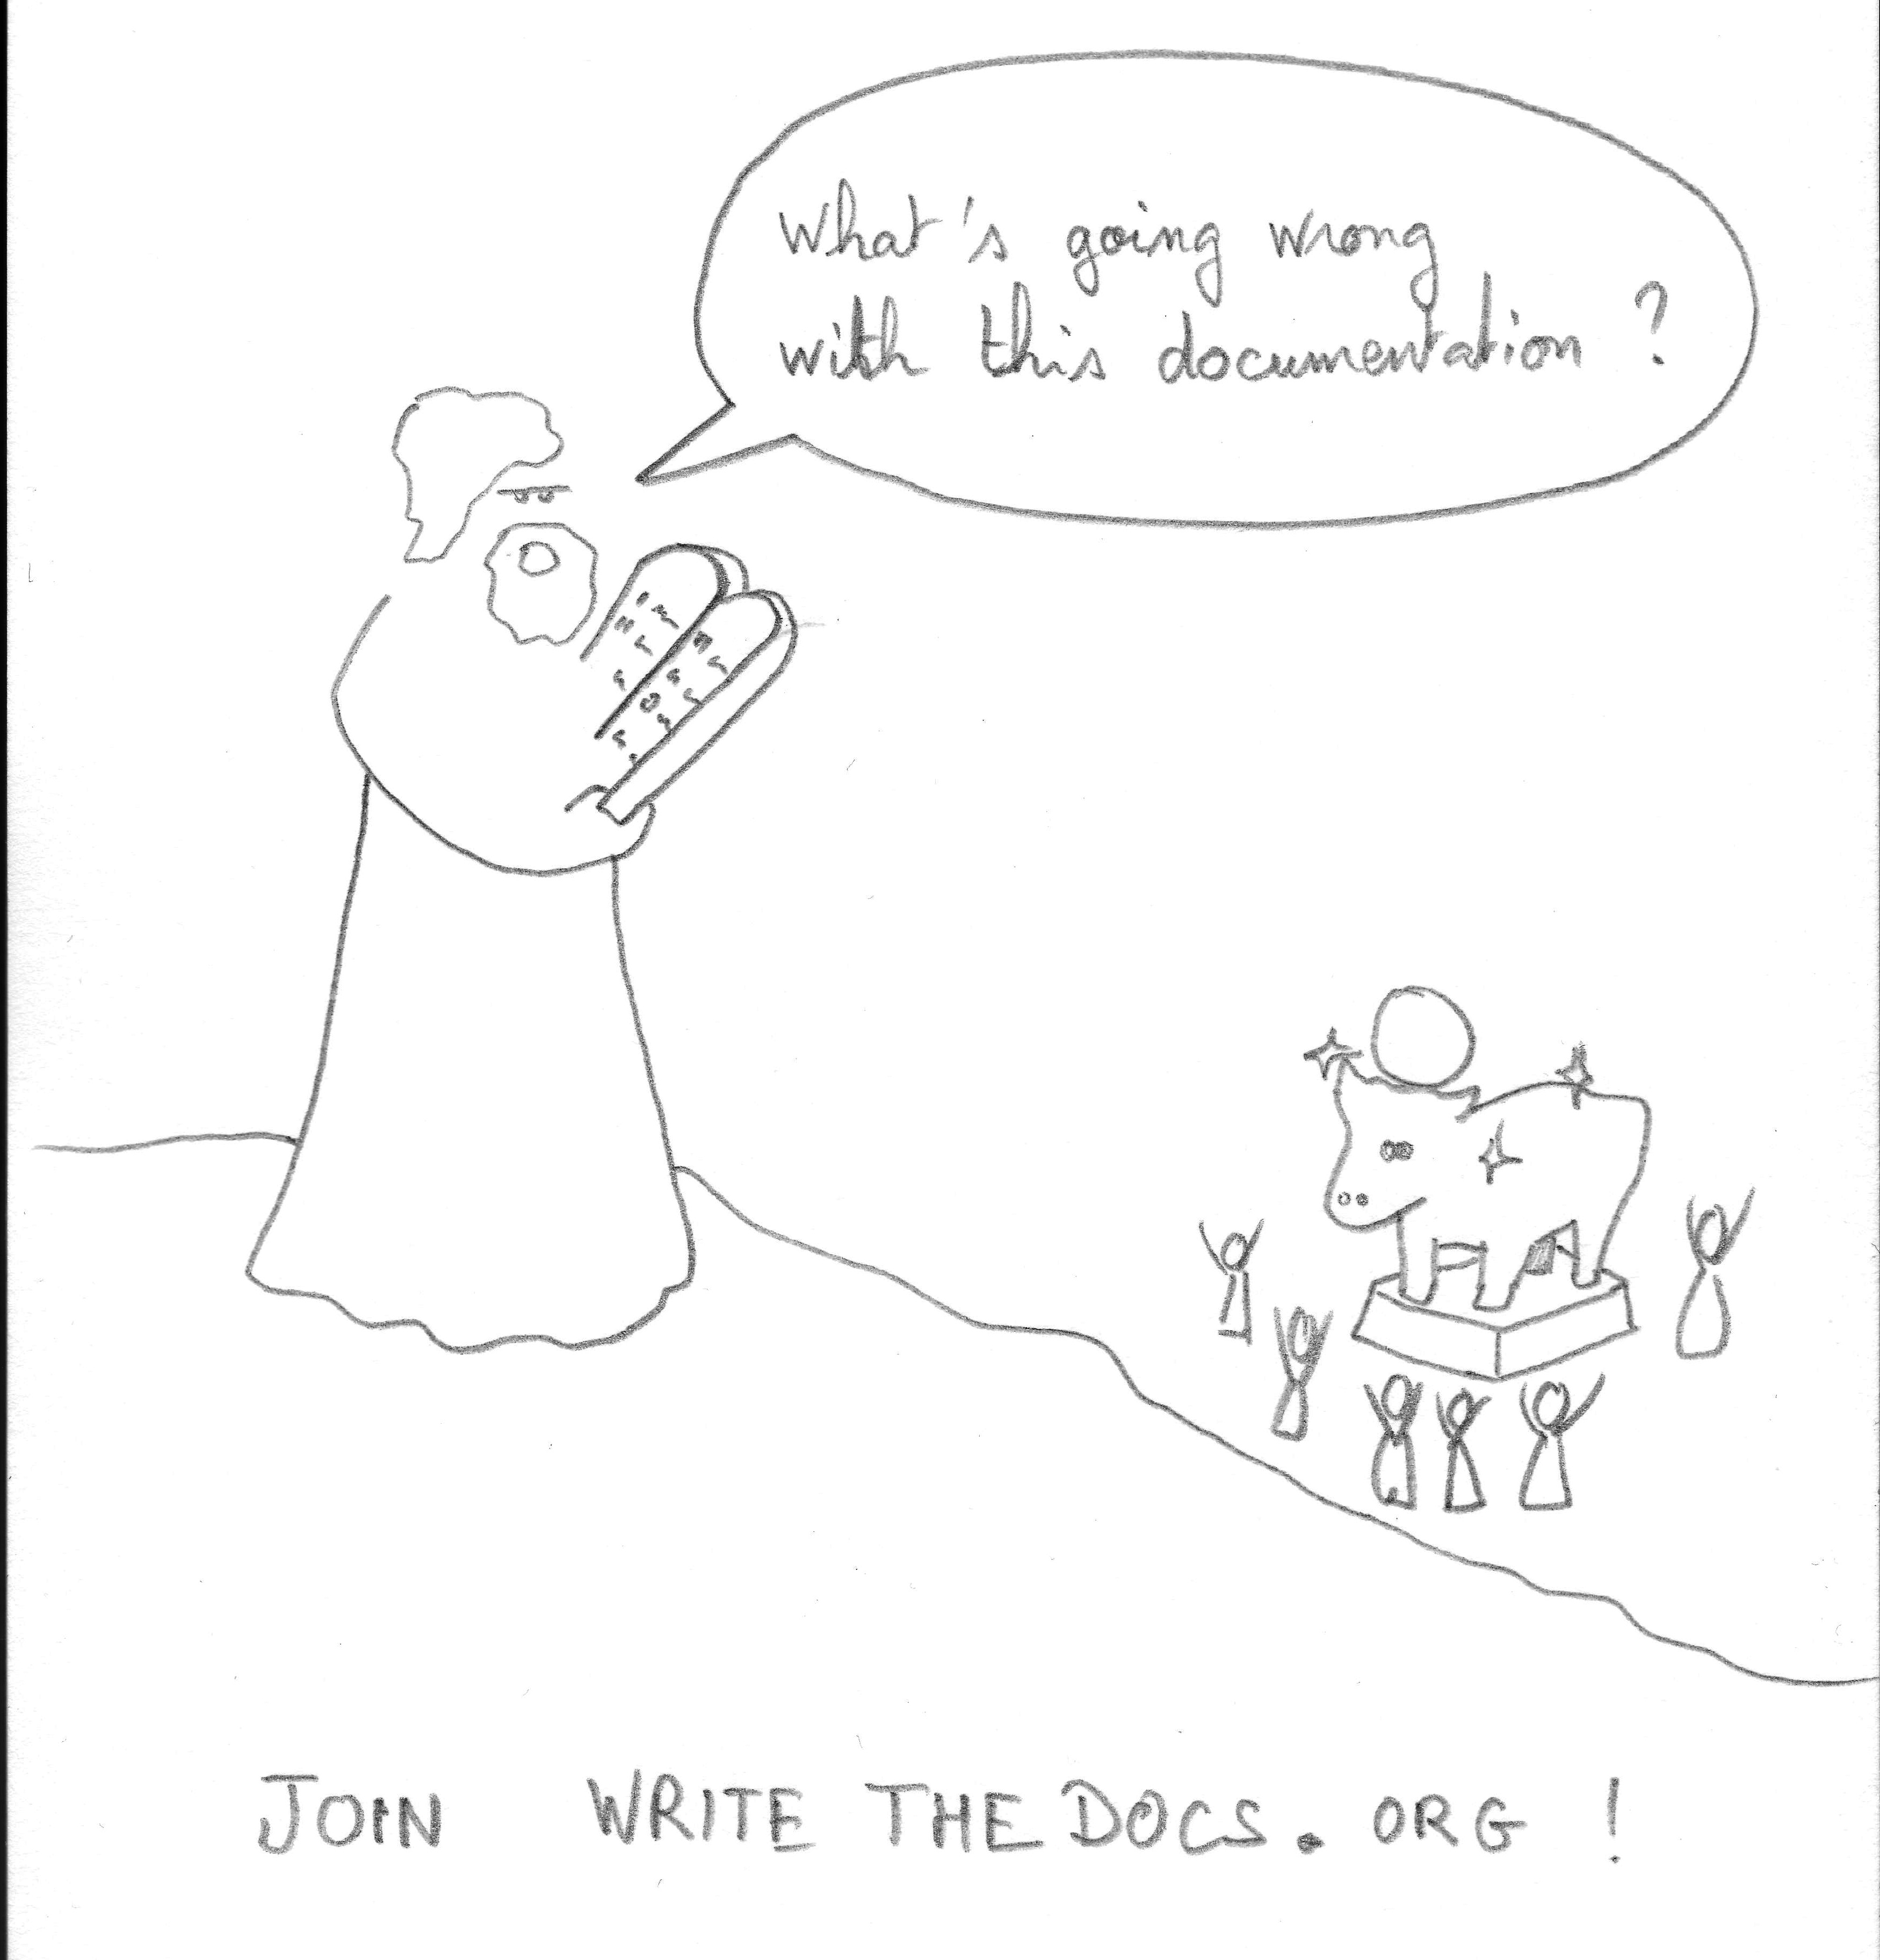 What's going wrong
with this documentation ?
JOIN WRITE THE DOCS. ORG !